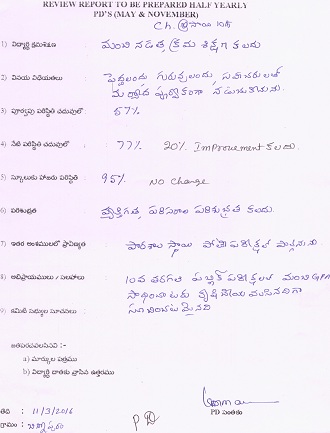 REVIEW REPORT TO BE PREPARED HALF YEARLY
PD'S (MAY & NOVEMBER)
Ch. సాయి
1) విద్యార్థి క్రమశిక్షణ : మంచి నడత, క్రమ శిక్షణ కలదు
2) వినయ విధేయతలు : పెద్దలందు గురువులందు,
నడుచుకొనును.
3) పూర్వపు పరిస్థితి చదువులో : 57%
4) నేటి పరిస్థితి చదువులో : 77% 20% Improvement కలదు.
5) స్కూలుకు హాజరు పరిస్థితి : 95% NO Change
6) పరిశుభ్రత : వ్యక్తిగత పరిసరాల పరిశుభ్రత కలదు.
7) ఇతర అంశములలో ప్రావీణ్యత : పాఠశాల స్థాయి పోటీ పరీక్షలో
8) అభిప్రాయములు / సలహాలు : 10వ తరగతి పబ్లిక్ పరీక్షలలో మంచి GPA
సాధించుటకు కృషి చేయ వలసినదిగా
9) కమిటీ సభ్యుల సూచనలు : సూచించటమైనది
జతపరచవలసినవి :-
a) మార్కుల పత్రము
b) విద్యార్థి దాతకు వ్రాసిన ఉత్తరము
తేది : 11/3/2016
PD సంతకం
గ్రామం :
PD